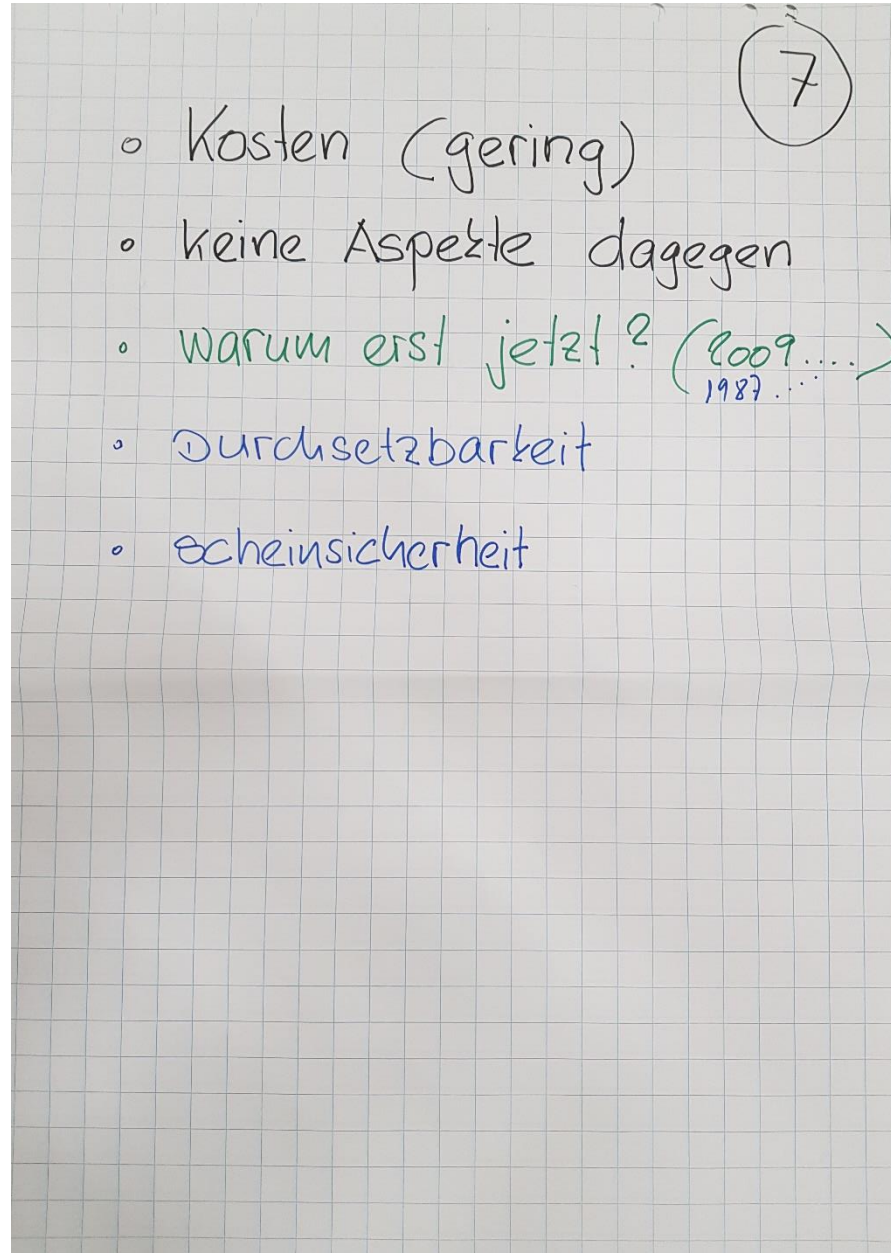 7
◦ Kosten (gering)
◦ Keine Aspekte dagegen
◦ Warum erst jetzt? (2009....)
1987.....
◦ Durchsetzbarkeit
◦ Scheinsicherheit